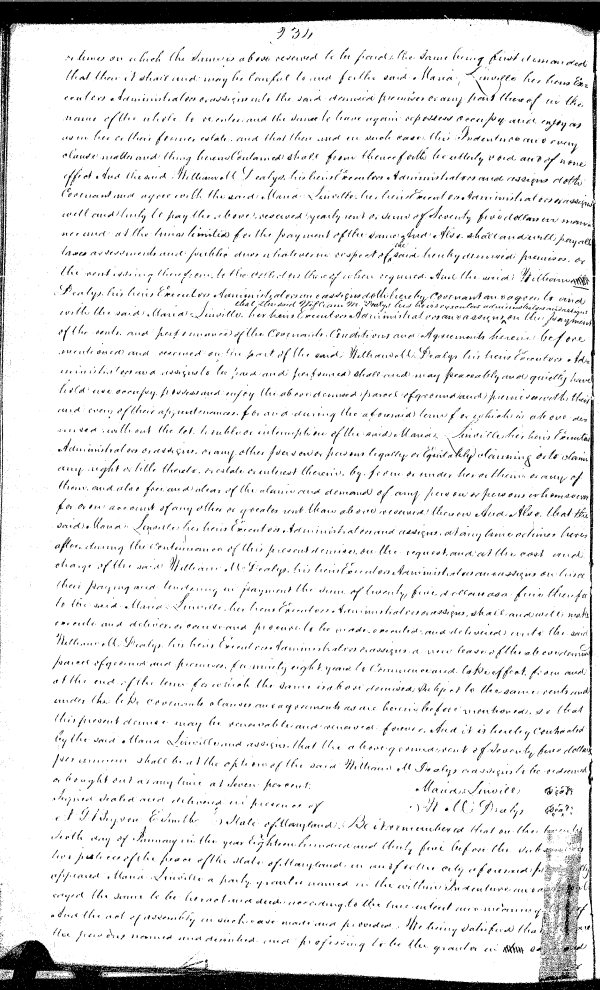 234
or times on which the same is above reserved to be paid the same being first demanded
that then it shall and may be lawful to and for the said Maria Linville her heirs Exe-
cutors Administrators or assigns into the said demised premises or any part thereof in the
name of the whole to re enter and the same to have again repossess occupy and enjoy as
as in her or their former estate, and that then and in such case this Indenture and every
clause matter and thing herein Contained shall from thenceforth be utterly void and of none
effect And the said William M Dealys, his heirs Executors Administrators and assigns doth
Covenant and agree with the said Maria Linville, her heirs Executors Administrators or assigns
well and truly to pay the above reserved yearly rent or sum of Seventy five dollars in man-
ner and at the times limited for the payment of the same, And Also shall and will pay all
taxes assessments and public dues whatsoever in respect of the said hereby demised premises or
the rent issuing therefrom to the when required And the said William
Dealys, his heirs Executors Administrators or assigns doth hereby covenant and agree to and
that the said William M. Dealys his heirs executors administrators and assigns
with the said Maria Linville, her heirs Executors Administrators and assigns on the payment
of the rents and performance of the Covenants Conditions and Agreements herein before
mentioned and reserved on the part of the said William M Dealys his heirs Executors Ad-
ministrators and assigns to be paid and performed shall and may peaceably and quietly have
hold use occupy possess and enjoy the above demised parcel of ground and premises with their
and every of their appurtenances for and during the aforesaid term for which is above de-
mised without the let trouble or interruption of the said Maria Linville, her heirs Executors
Administrators or assigns or any other person or persons legally or Equitably claiming or to claim
any right or title thereto, or estate or interest therein by, from or under her or them or any of
them and also free and clear of the claim and demand of any person or persons whomsoever
for or on account of any other or greater rent than above reserved thereon And Also, that the
said Maria Linville, her heirs Executors Administrators and assigns, at any time or times here-
after during the Continuance of this present demise, on the request and at the cost and
charge of the said William M Dealys, his heirs Executors Administrators or assigns on his or
their paying and tendering in payment the sum of twenty five dollars as a fine therefor
to the said Maria Linville, her heirs Executors Administrators or assigns, shall and will make
execute and deliver or cause and procure to be made, executed and delivered unto the said
William M. Dealys his heirs Executors Administrators or assigns a new lease of the above demised
parcel of ground and premises for ninety eight years to Commence and take effect from and
at the end of the term for which the same is above demised Subject to the same rents and
under the like covenants clauses and agreements as are herein before mentioned so that
this present demise may be renewable and renewed forever, And it is hereby Contracted
by the said Maria Linville and assigns, that the above ground rent of Seventy five dollars
per annum shall be at the option of the said William M Dealys or assigns to be redeemed
or bought out at any time at Seven percent.
Maria Linville Seal
Signed sealed and delivered in presence of W M. Dealys Seal
E Smith State of Maryland, Be it remembered that on the twenty
sixth day of January in the year eighteen hundred and thirty five before the
two justices of the peace of the State of Maryland in and for the city aforesaid
appeared Maria Linville a party grantor named in the within Indenture and
edged the same to be her act and deed according to the true intent and meaning of
And the act of assembly in such case made and provided We being satisfied that
the persons named and described and professing to be the grantor in